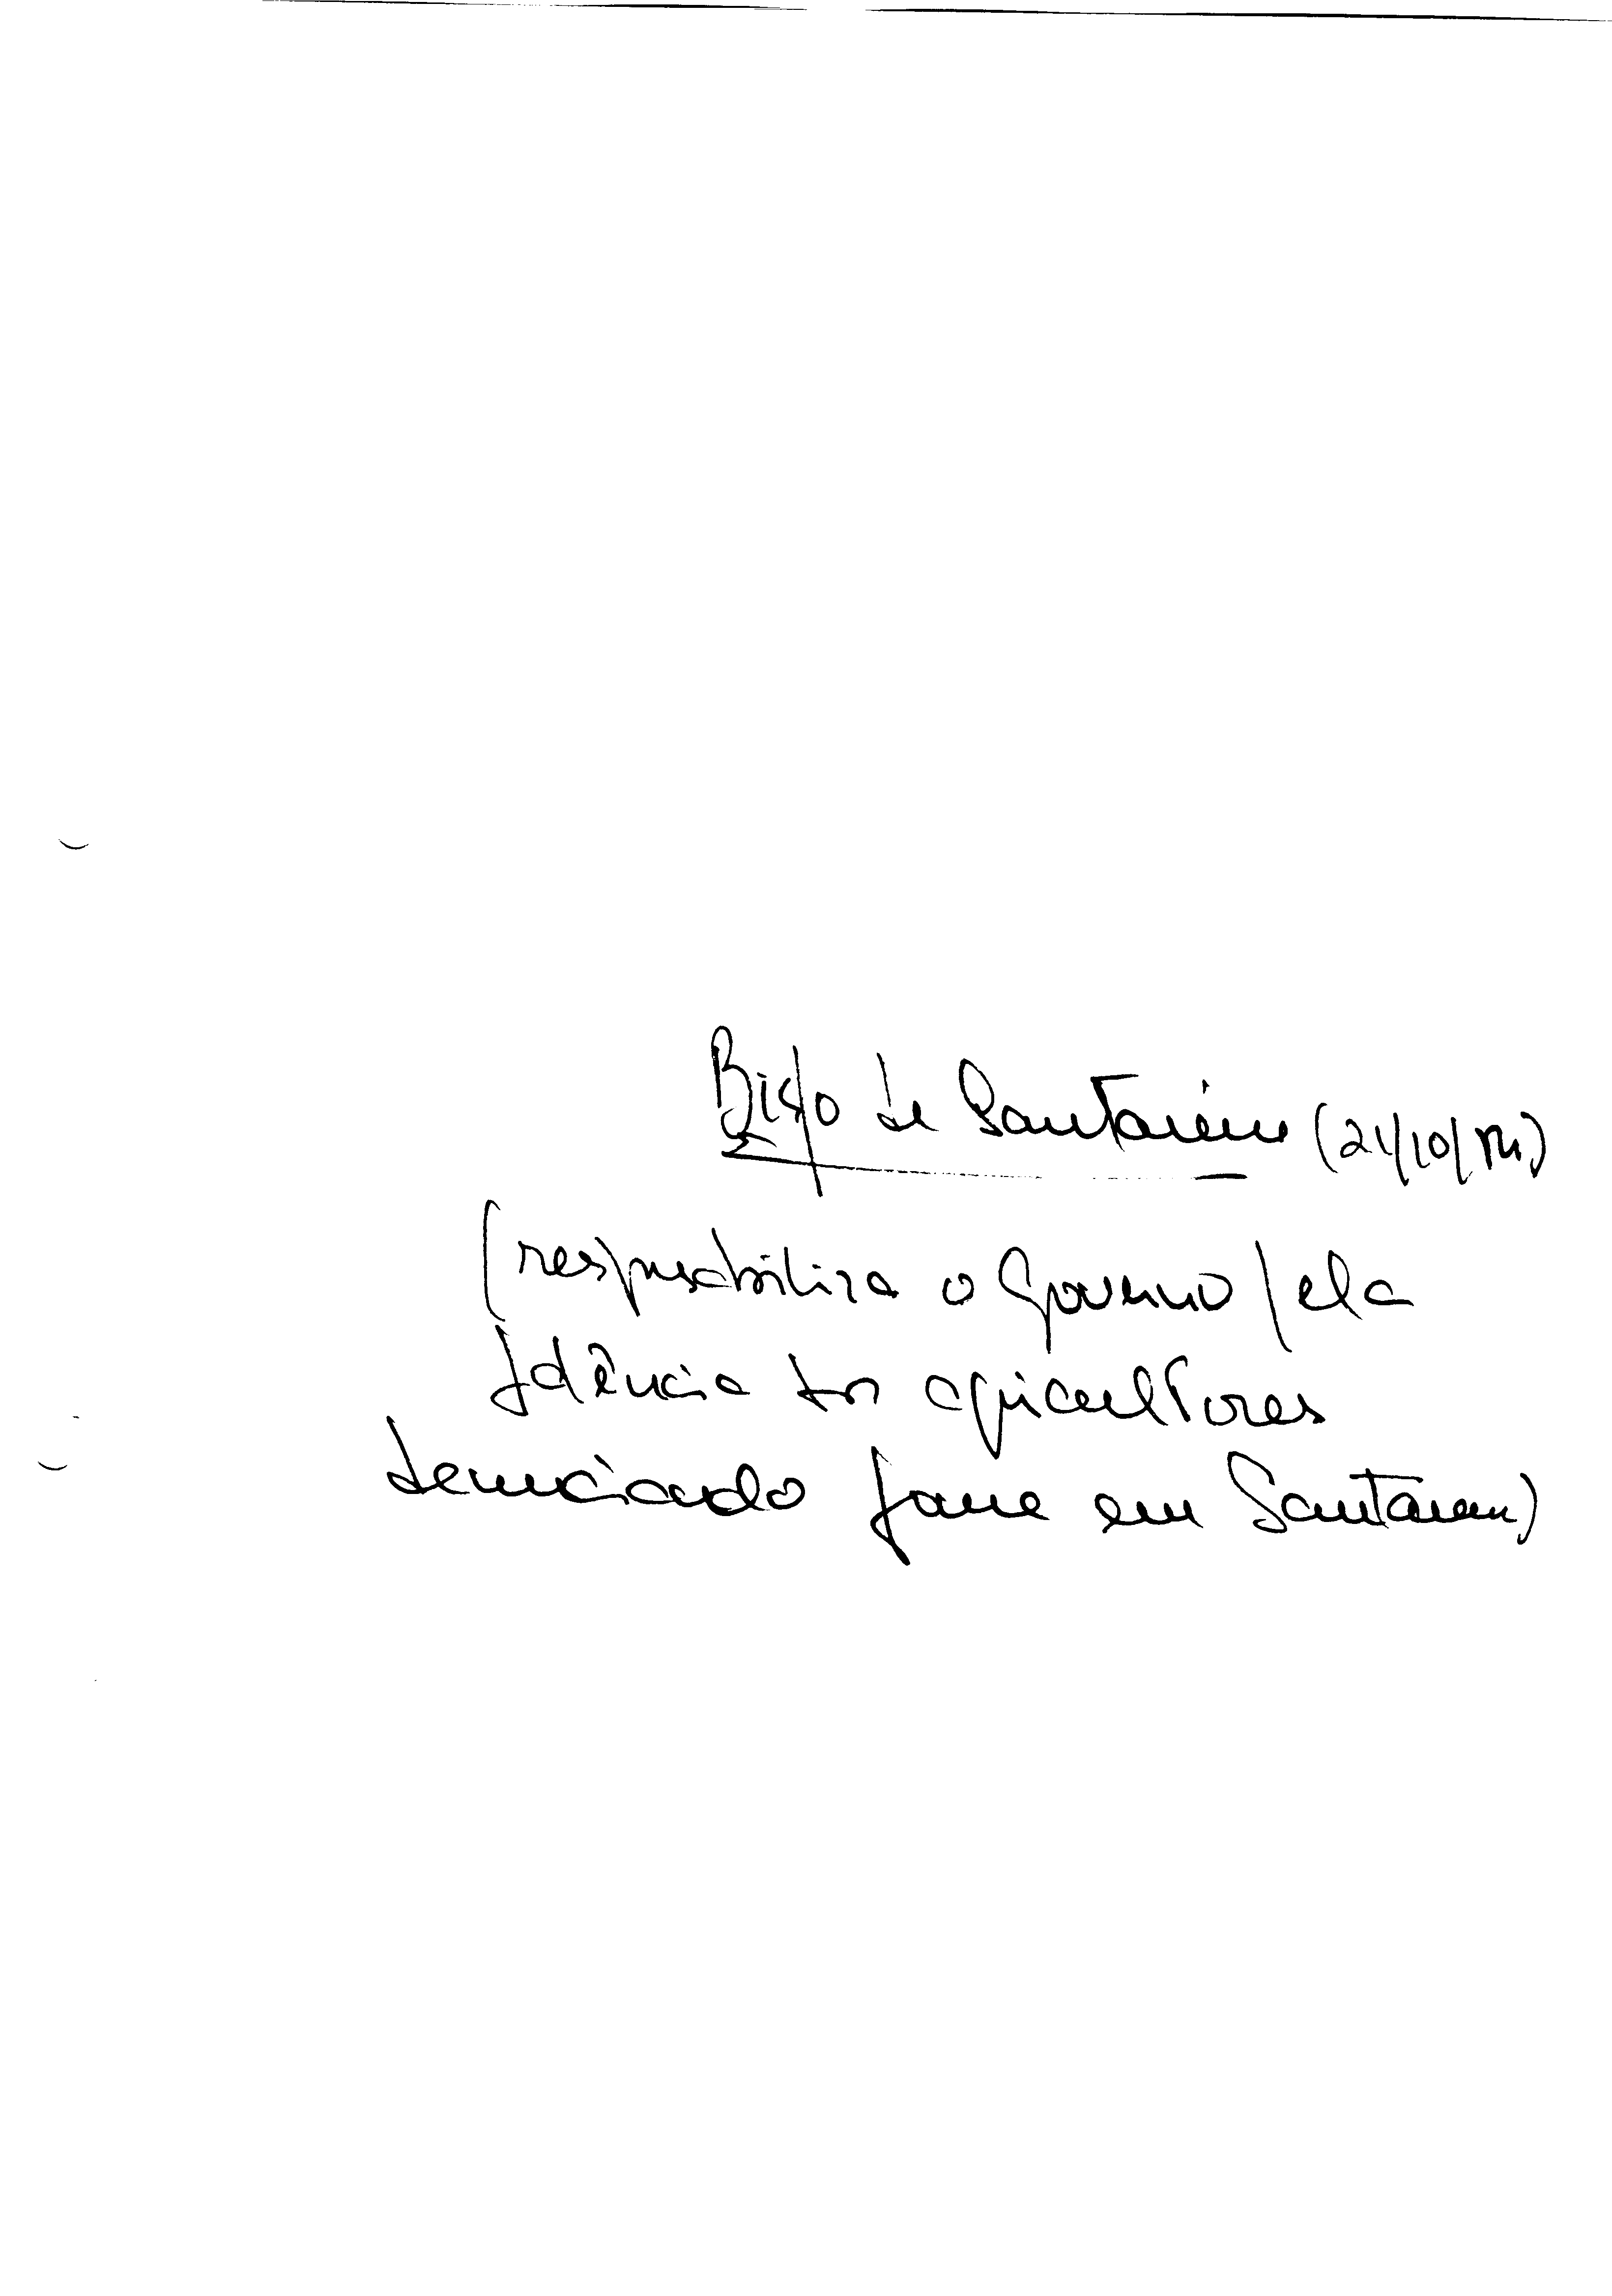 Bispo de Santarém (21/10/
(responsabiliza o Governo pela
falência dos agricultores
denunciando fome em Santarem)